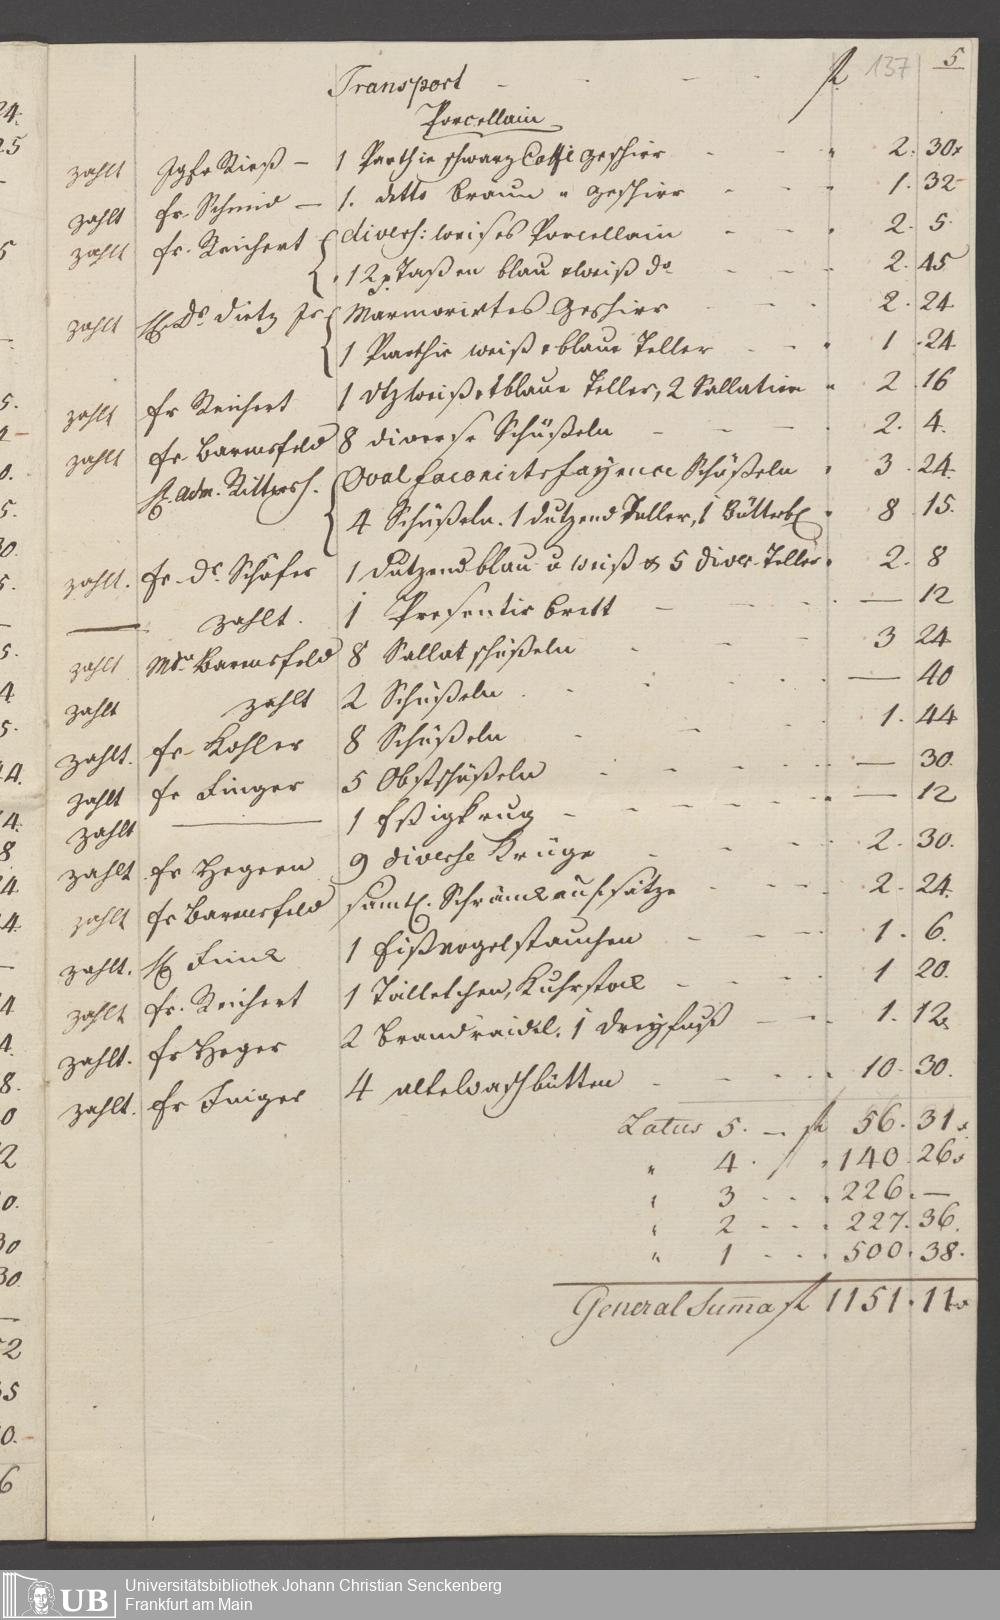 Transport f 137 5
Porcellain
zahlt Jgfr Rieß — 1 Parthie schwarz Coffe geschirr 2. 30x
zahlt fr. Schmid — 1. detto braun " geschirr 1. 32
zahlt fr. Reichert divers: weises Porcellain 2. 5
12 p Taßen blau & weiß do 2. 45
zahlt H. Dr Dietz Marmorirtes Geschirr 2. 24
1 Parthie weiß & blaue Teller 1. 24
zahlt fr Reichert 1 Dtz weiß & blaue Teller, 2 Sallatier 2 16
zahlt fr Barmsfeld 8 diverse Schüßeln 2. 4.
H. adm. Rittersh. Oval faconirte fayence Schüßeln 3. 24.
4 Schüßeln. 1 dutzend Teller, 1 Butterb 8. 15.
zahlt. fr. Dr Schäfer 1 Dutzend blau u weiß & 5 divers. Teller 2. 8
— zahlt. 1 Presentir brett — 12
zahlt Barmsfeld 8 Sallat schüßeln 3 24
zahlt zahlt 2 Schüßeln — 40
zahlt. fr Kohler 8 Schüßeln 1. 44
zahlt fr Finger 5 Obstschüßeln — 30.
zahlt — 1 Eßigkrug — 12
zahlt fr Hegern 9 diverse Krüge 2. 30.
zahlt fr Barmsfeld samtl. Schrankaufsätze 2. 24.
zahlt. H Finck 1 Eißvogel 1. 6.
zahlt fr. Reichert 1 Kuhstall 1 20.
zahlt. fr Heger 2 1 Dreyfuß 1. 12
zahlt. fr Finger 4 alte Waschbütten 10. 30.
Latus 5. — f 56. 31x
" 4. " 140. 26x
" 3 " 226. —
" 2 " 227. 36.
" 1 " 500. 38.
General Suma f 1151. 11x
UB
Universitätsbibliothek Johann Christian Senckenberg
Frankfurt am Main